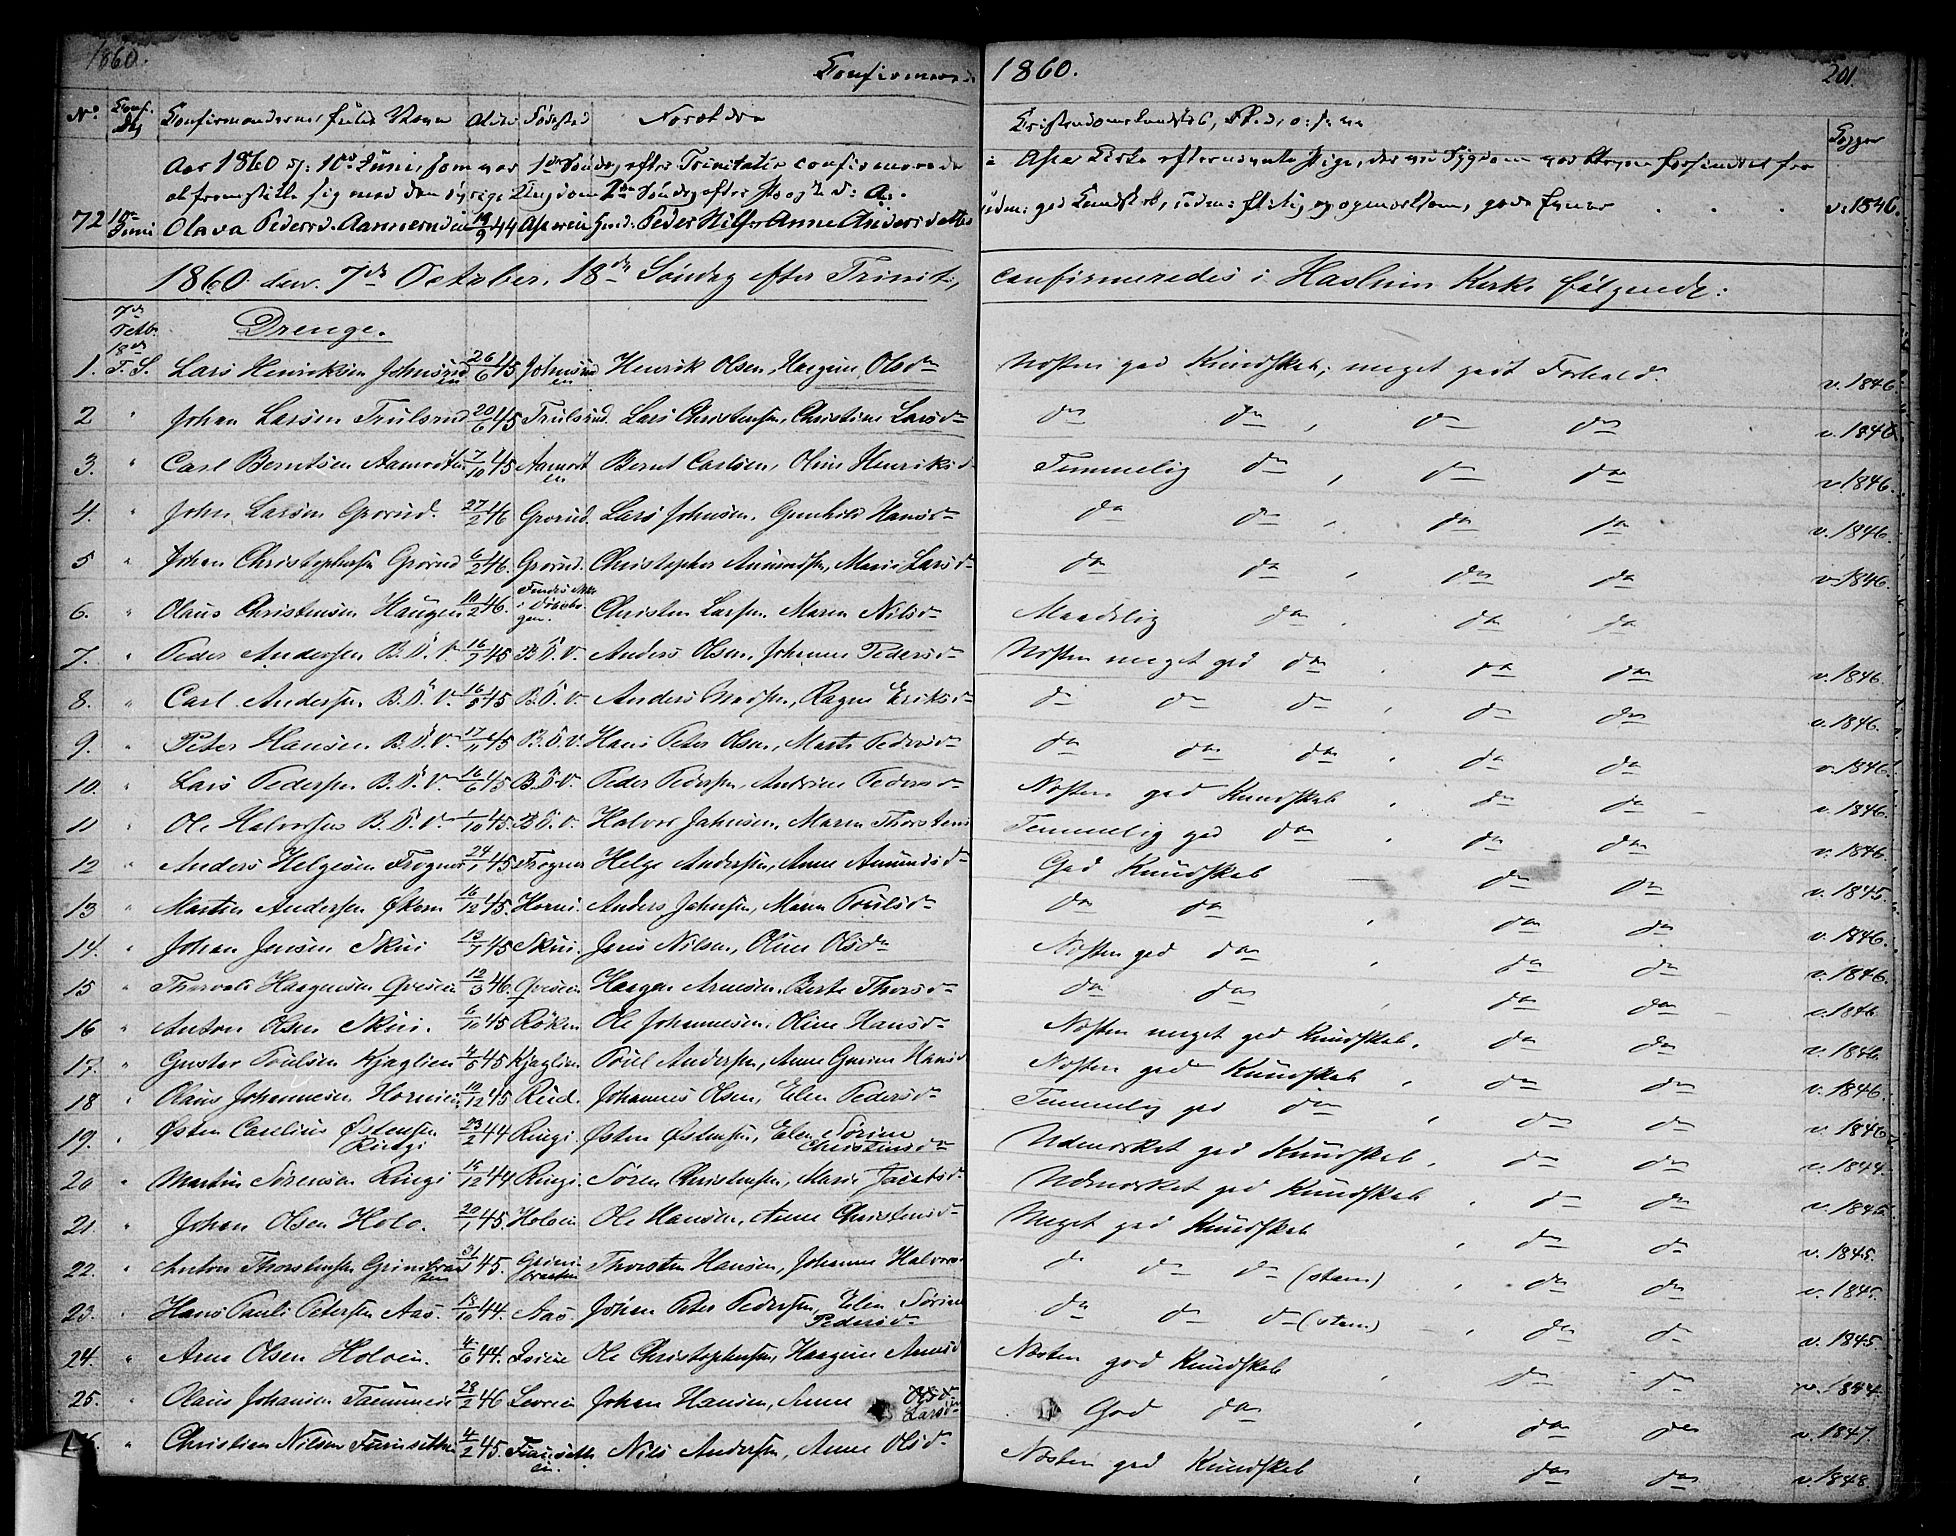 1860. Confirmerede 1860. 201.
No Conf. Dag Confirmandernes fulde Navn Alder Födested Forældre Christendomskundskab, Flid, o: s: v: Copper
Aar 1860 d: 10de Juni, som var 1ste Söndag efter Trinitatis confirmerede i Asker Kirke efternævnte Pige, der ved Sygdom var bleven forhindret fra
at fremstille sig med den övrige Ungdom 2den Söndag efter Paaske d: A:
72 10de Juni Olava Pedersd. Aamerudeie 19/9 44 Askereie Gmd: Peder Nilss Anne Andersdatter god Kundskab, flittig og opmærksom, gode Evner . . . v: 1846.
1860 den 7de October, 18de Söndag efter Trinit., confirmeredes i Haslum Kirke følgende:
7de Octb. 18de Drenge.
1. T. S. Lars Henriksen Johnsrudeie 26/6 45 Johnsrudeie Henrik Olsen, Haagine Olsdr Næsten god Kundskab, meget godt Forhold. v. 1846.
2 " Johan Larsen Trulsrud 20/6 45 Trulsrud. Lars Christensen, Christine Larsdr do do , do do v. 1846
3. " Carl Berntsen Aamodten 7/10 45 Aamodten Bernt Carlsen, Oline Henriksd. Temmelig do , do do v. 1846.
4. " John Larsen Grorud. 27/2 46 Grorud. Lars Johnsen, Gunhild Hansdr do do , do do v. 1846.
5 " Johan Christophersen Grorud 6/2 46. Grorud. Christopher Amundsen, Marie Larsdr do do , do do v 1846.
6. " Olaus Christensen Haugen 10/2 46. Christen Larsen, Maren Nilsdr Maadelig do , do do
7. " Peder Andersen B.Ö.V. 16/7 45 B.Ö.V. Anders Olsen, Johanne Pedersdr Næsten meget god do , do do v. 1846.
8. " Carl Andersen B.Ö.V. 16/5 45 B.Ö.V. Anders Madsen, Ragne Eriksdr do do do , do do v. 1846.
9. " Peter Hansen B.Ö.V. 17/11 45 B.Ö.V. Hans Peter Olsen, Marte Pedersdr do do do , do do v. 1846.
10. " Lars Pedersen B.Ö.V. 16/6 45 B.Ö.V. Peder Pedersen, Andrine Pedersdr Næsten god Kundskab , do do v. 1846.
11 " Ole Halvorsen B.Ö.V. 1/10 45. B.Ö.V. Halvor Johnsen, Maren Thorstens Temmelig god do , do do v. 1846.
12 " Anders Helgesen Frogner 24/1 45 Frogner Helge Andersen, Anne Amundsdr God Kundskab — do do v. 1845
13 " Martin Andersen Økern 16/12 45. Hornie. Anders Johnsen, Maren Poulsdr do do , do do v. 1846.
14. " Johan Jensen Skui 13/7 45 Skui. Jens Nilsen, Oline Olsdr Næsten god do , do do v. 1846.
15 " Thorvald Haagensen Qveseie 12/3 46. Qveseie Haagen Arnesen, Berte Thorsdr do do , do do v. 1846
16 " Anton Olsen Skui. 6/10 45 Röken Ole Johannesen, Oline Hansdr Næsten meget god Kundskab, do do v. 1846.
17. " Gustav Poulsen Kjaglien 4/5 45 Kjaglien Poul Andersen, Anne Gurine Hansd Næsten god Kundskab , do do v. 1846.
18 " Olaus Johannesen Hornie 10/12 45 Rud. Johannes Olsen, Elen Pedersdr Temmelig god do , do do v. 1846
19. " Østen Carelius Østensen Ringi 23/2 44 Ringi. Østen Østensen, Elen Sörine Christensdr Udmærket god Kundskab, do do v. 1844.
20 " Martin Sörensen Ringi 15/12 44 Ringi. Sören Christensen, Marie Jacobsdr Udmærket god Kundskab , do do v. 1845.
21. " Johan Olsen Holo. 20/1 45. Holoeie Ole Hansen, Anne Christensdr Meget god Kundskab , do do v. 1845.
22. " Anton Thorstensen Grinibraaten 31/1 45. Grinibraaten Thorsten Hansen, Johanne Halvorsd do do do (stam) , do do v. 1845.
23. " Hans Pauli Petersen Aas. 13/10 44. Aas. Johan Peter Pedersen, Elen Sörine Pedersdr do do do (stam) , do do v. 1845.
24. " Arne Olsen Holoeie. 4/6 44. Ole Christophersen, Haagine Arnesd Næsten god Kundskab , do do v. 1844.
25. " Olaus Johansen 28/2 46 Johan Hansen, Anne Olsdr Larsdr God do , do do v. 1847.
26. " Christian Nilsen Furusethen 4/2 45. Furusetheie. Nils Andersen, Anne Olsdr Næsten god Kundskab , do do v. 1848.